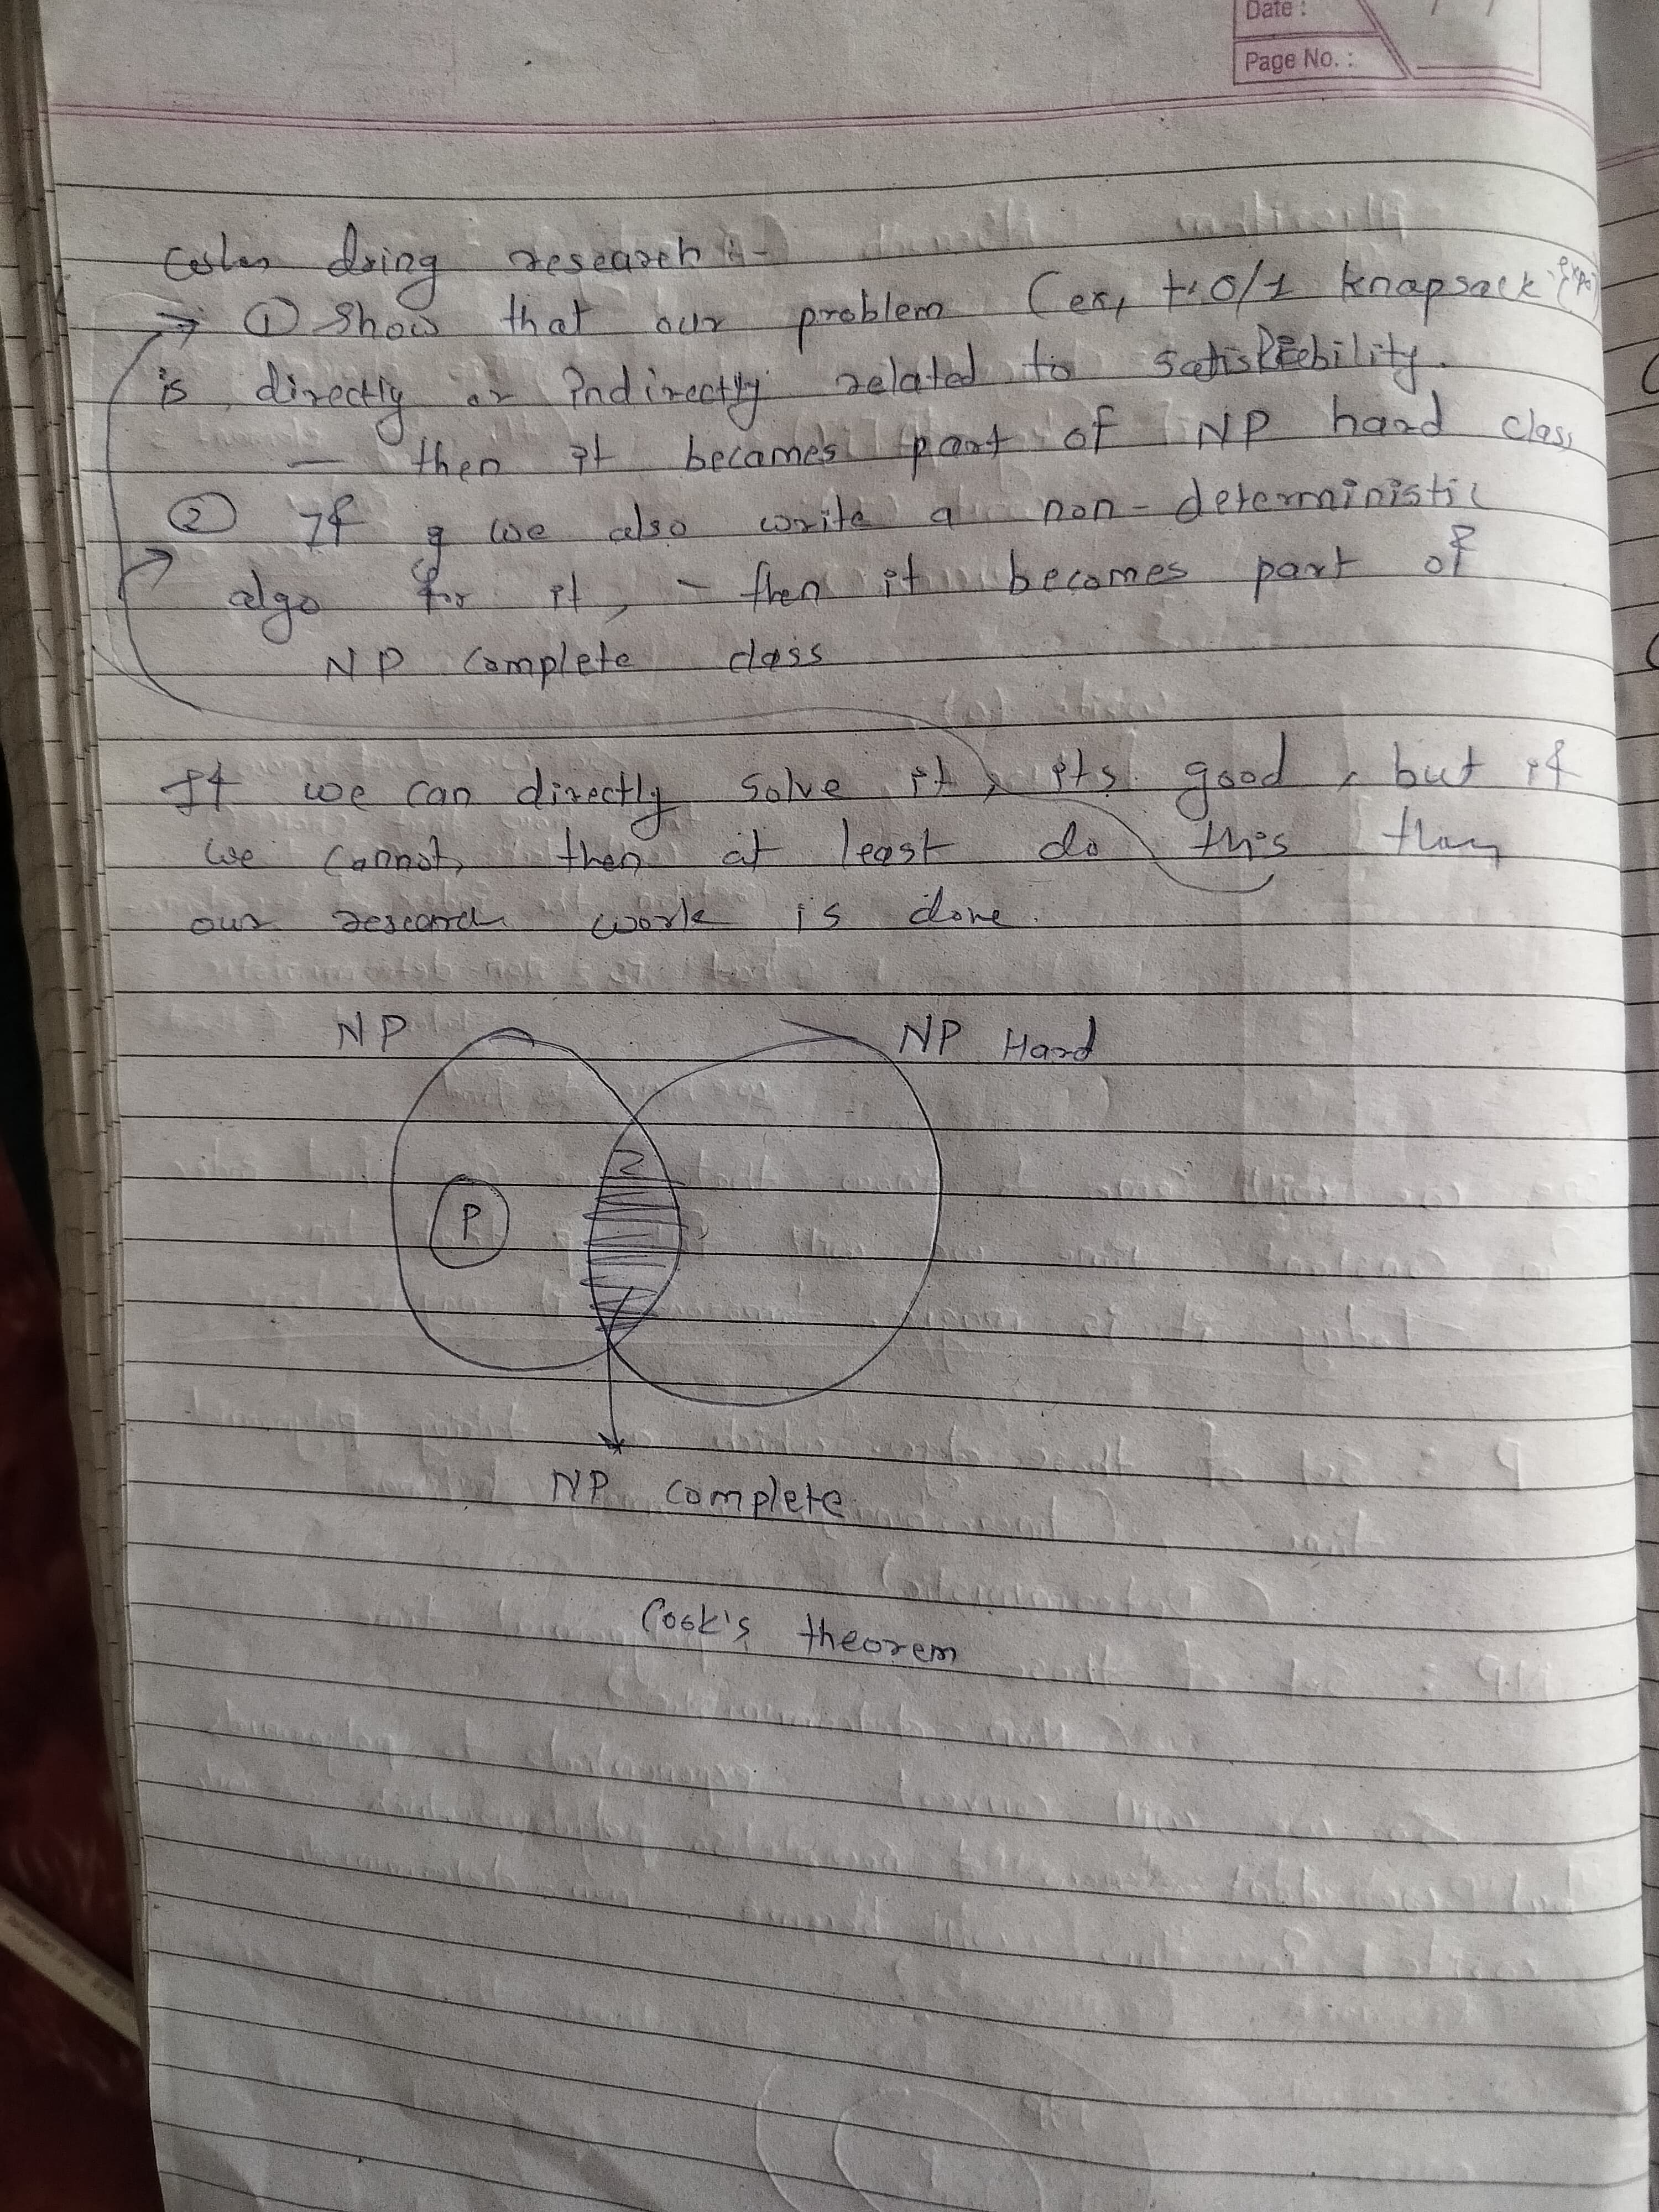 Date :
Page No. :
doing research :-
→ ① Show that our problem (ex, 0/1 knapsack
is directly or indirectly related to
— then it becames part of NP hard class
② If we also write a non-deterministic
algo for it, - then it becomes part of
NP Complete class
If we can directly solve it, its good, but if
we cannot, then at least do this
our research work is done.
NP
NP Hard
P
NP complete
Cook's theorem